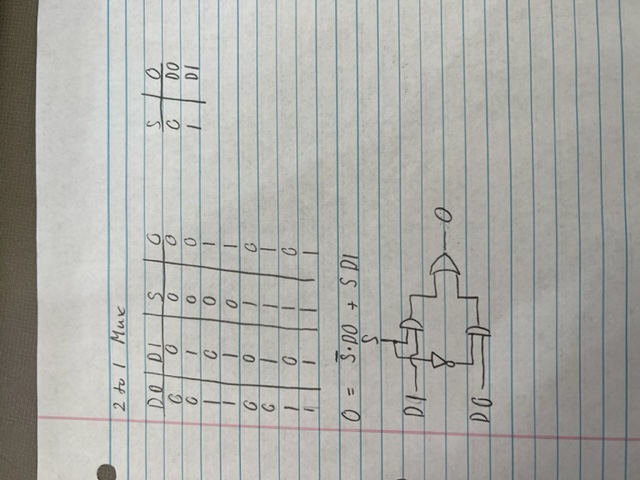 2 to 1 Mux
D0 D1 S O
0 0 0 0
0 1 0 0
1 0 0 1
1 1 0 1
0 0 1 0
0 1 1 1
1 0 1 0
1 1 1 1
S O
0 D0
1 D1
O = S̅·D0 + S D1
S
D1
O
D0